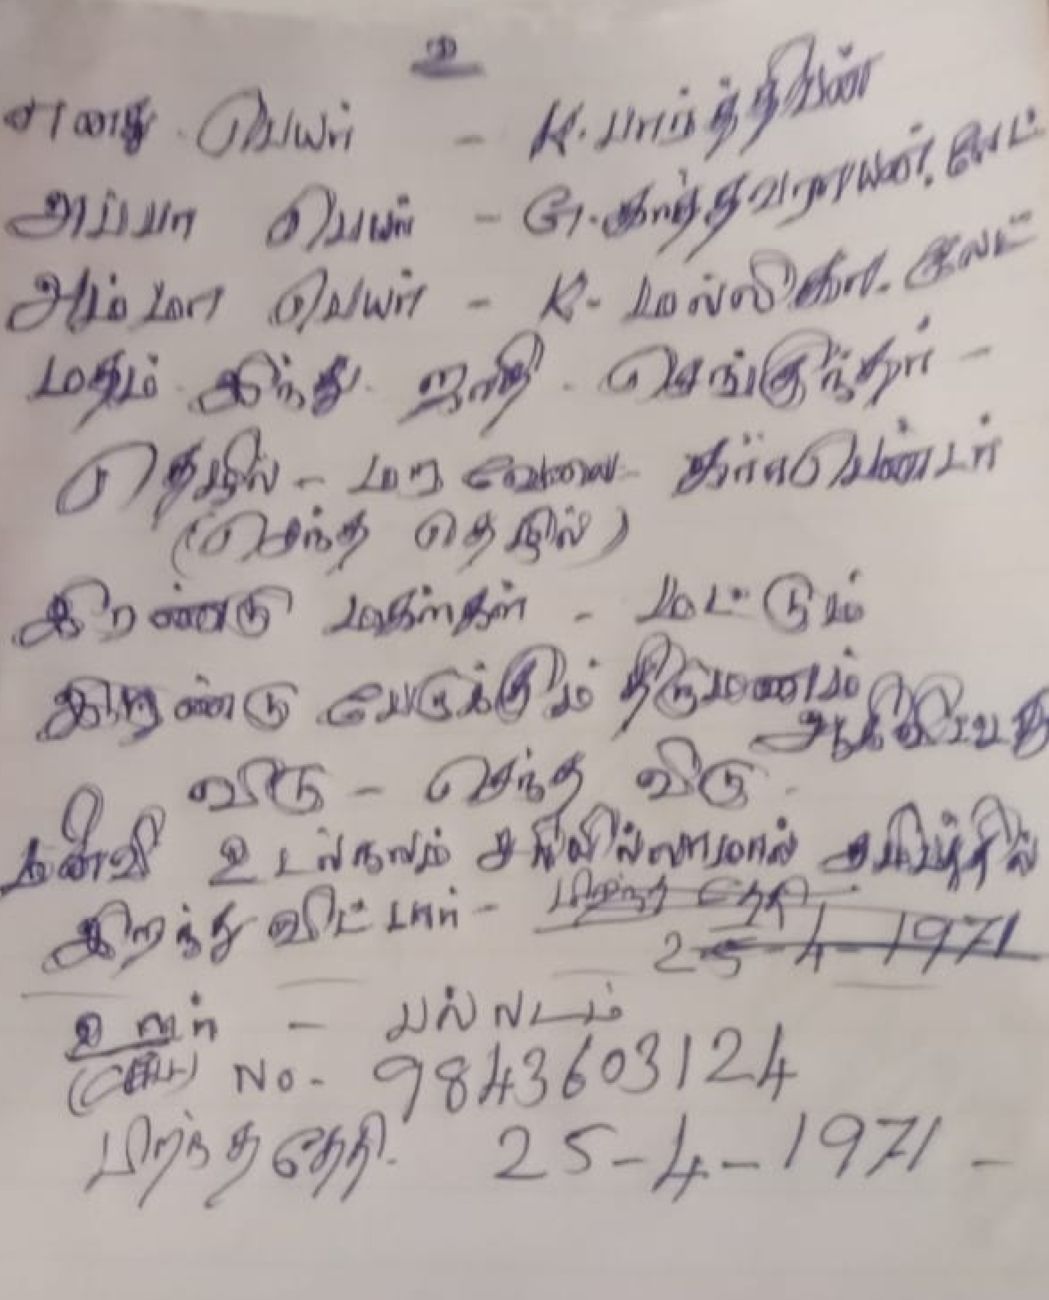 உ
எனது பெயர் - K. பார்த்திபன்
அப்பா பெயர் - G. காத்தவராயன். லேட்
அம்மா பெயர் - K. மல்லிகா. லேட்
மதம். இந்து. ஜாதி. செங்குந்தர் -
தெழில் - மர வேலை - கார்பெண்டர்
(சொந்த தெழில்)
இரண்டு மகள்கள் - மட்டும்
இரண்டு பேருக்கும் திருமணம்
ஆகிவிட்டது
விடு - சொந்த விடு.
மனைவி உடல்நலம் சரியில்லாமல் சமிபத்தில்
இறந்து விட்டார் - பிறந்த தேதி
25-4-1971
உளர் - பல்லடம்
(செல்) No. 9843603124
பிறந்த தேதி. 25-4-1971 -